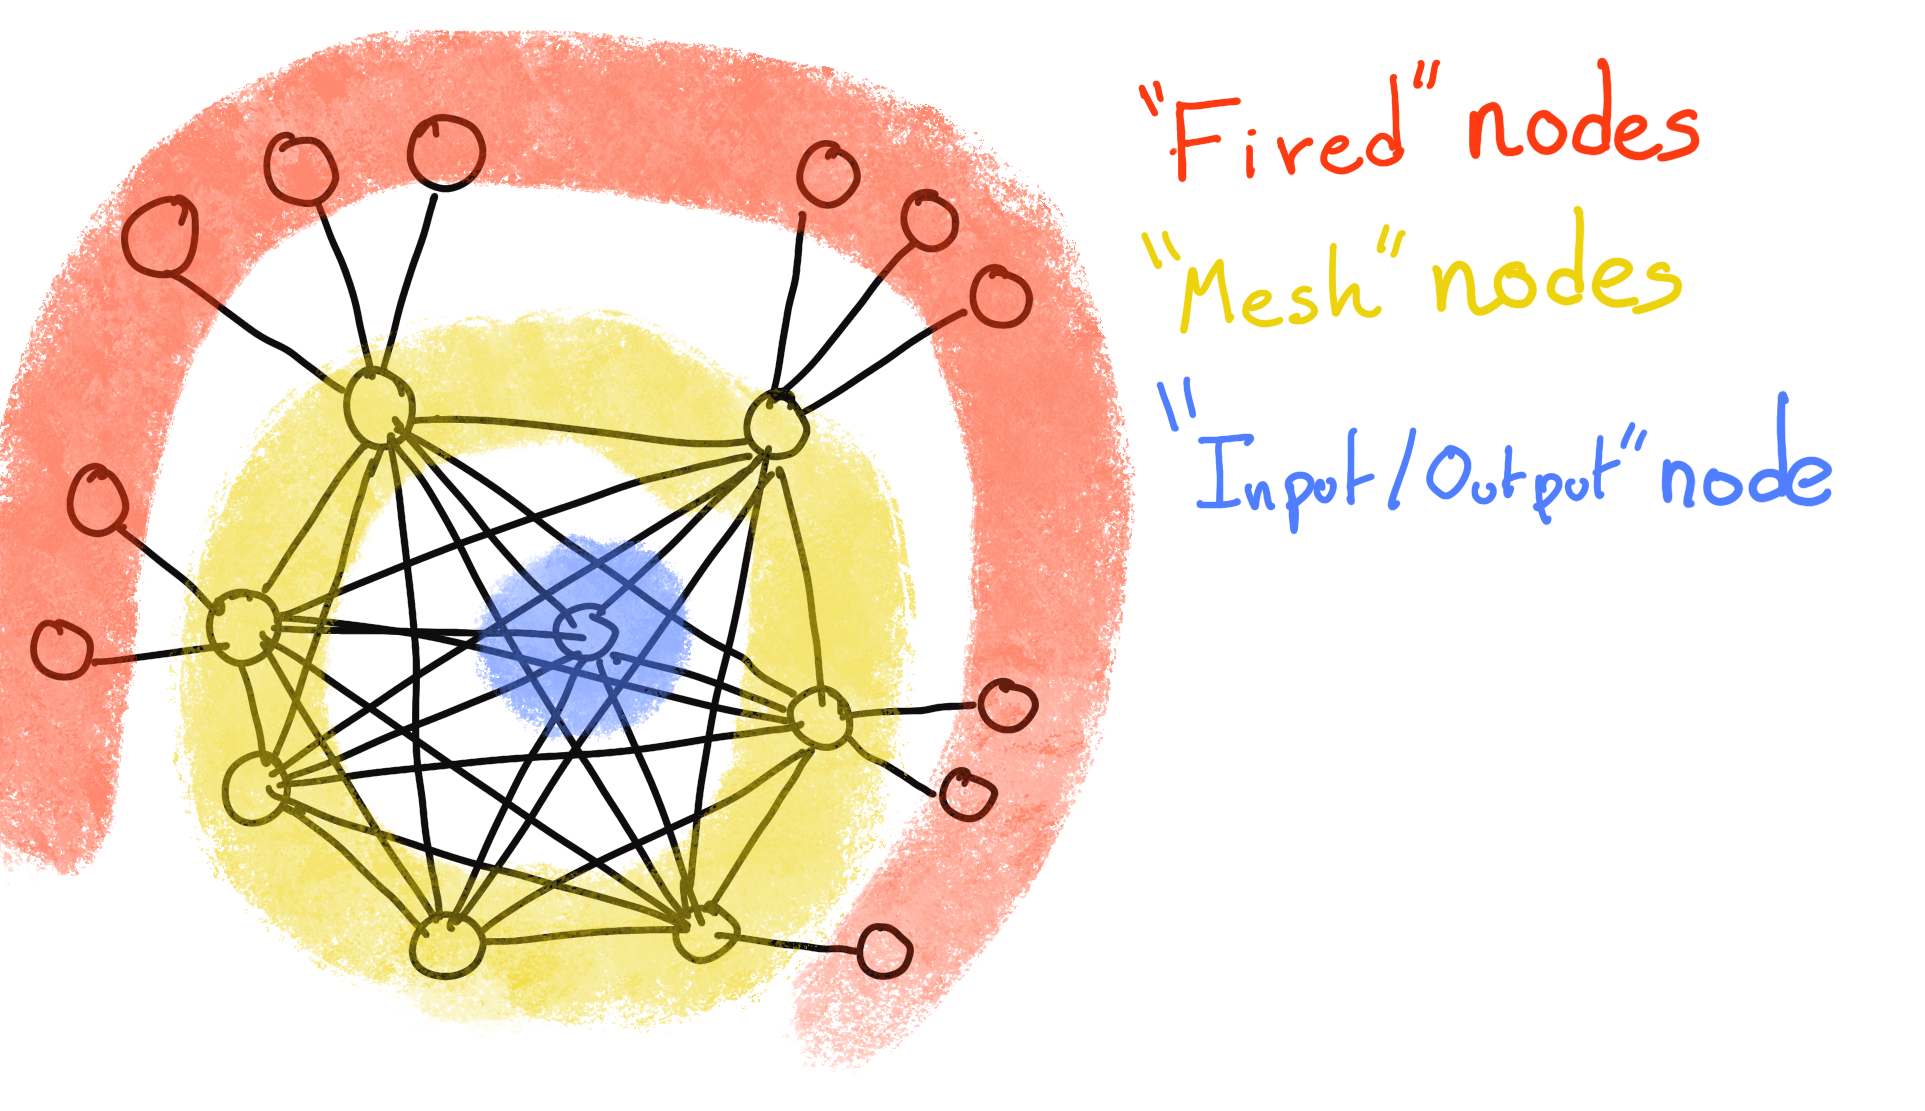 "Fired" nodes
"Mesh" nodes
"Input/Output" node